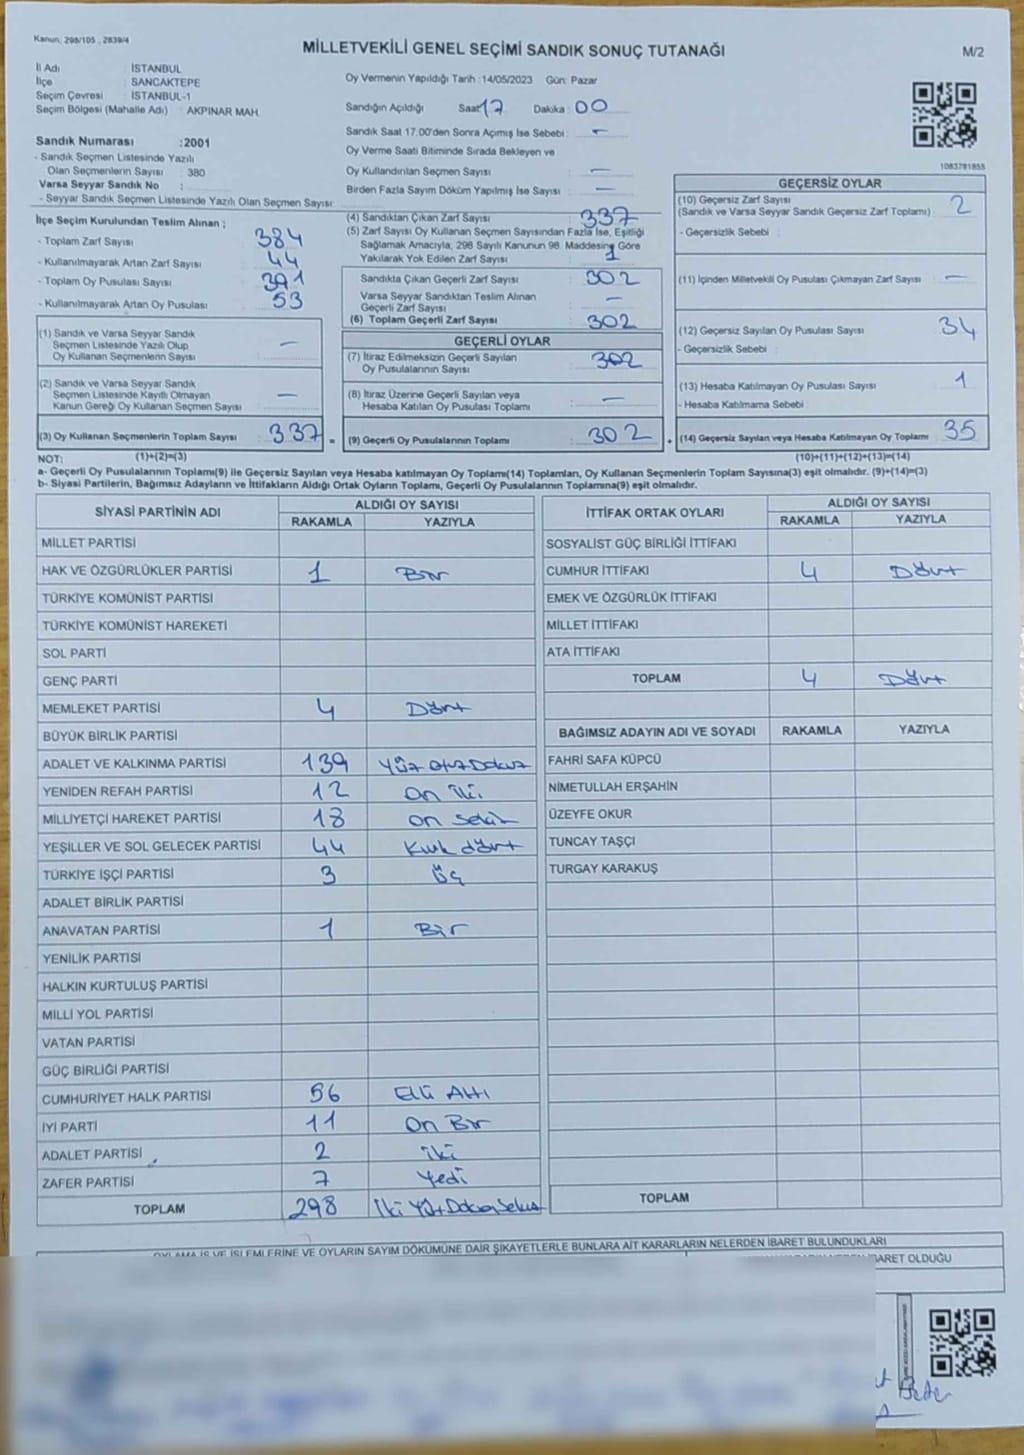 Kanun; 298/105 , 2839/4
MİLLETVEKİLİ GENEL SEÇİMİ SANDIK SONUÇ TUTANAĞI
M/2
İl Adı : İSTANBUL
İlçe : SANCAKTEPE
Seçim Çevresi : İSTANBUL-1
Seçim Bölgesi (Mahalle Adı) : AKPINAR MAH.
Sandık Numarası :2001
- Sandık Seçmen Listesinde Yazılı
Olan Seçmenlerin Sayısı : 380
Varsa Seyyar Sandık No :
- Seyyar Sandık Seçmen Listesinde Yazılı Olan Seçmen Sayısı:
Oy Vermenin Yapıldığı Tarih :14/05/2023 Gün: Pazar
Sandığın Açıldığı Saat 17 Dakika : 00
Sandık Saat 17.00'den Sonra Açımış İse Sebebi : —
Oy Verme Saati Bitiminde Sırada Bekleyen ve
Oy Kullandırılan Seçmen Sayısı : —
Birden Fazla Sayım Döküm Yapılmış İse Sayısı : —
1083781855
İlçe Seçim Kurulundan Teslim Alınan ;
- Toplam Zarf Sayısı : 384
- Kullanılmayarak Artan Zarf Sayısı : 44
- Toplam Oy Pusulası Sayısı : 391
- Kullanılmayarak Artan Oy Pusulası : 53
(1) Sandık ve Varsa Seyyar Sandık
Seçmen Listesinde Yazılı Olup
Oy Kullanan Seçmenlerin Sayısı : —
(2) Sandık ve Varsa Seyyar Sandık
Seçmen Listesinde Kayıtlı Olmayan
Kanun Gereği Oy Kullanan Seçmen Sayısı : —
(3) Oy Kullanan Seçmenlerin Toplam Sayısı : 337 =
(4) Sandıktan Çıkan Zarf Sayısı : 337
(5) Zarf Sayısı Oy Kullanan Seçmen Sayısından Fazla İse, Eşitliği
Sağlamak Amacıyla, 298 Sayılı Kanunun 98. Maddesine Göre
Yakılarak Yok Edilen Zarf Sayısı : 1
Sandıkta Çıkan Geçerli Zarf Sayısı : 302
Varsa Seyyar Sandıktan Teslim Alınan
Geçerli Zarf Sayısı : —
(6) Toplam Geçerli Zarf Sayısı : 302
GEÇERLİ OYLAR
(7) İtiraz Edilmeksizin Geçerli Sayılan
Oy Pusulalarının Sayısı : 302
(8) İtiraz Üzerine Geçerli Sayılan veya
Hesaba Katılan Oy Pusulası Toplamı : —
(9) Geçerli Oy Pusulalarının Toplamı : 302 +
GEÇERSİZ OYLAR
(10) Geçersiz Zarf Sayısı
(Sandık ve Varsa Seyyar Sandık Geçersiz Zarf Toplamı) : 2
- Geçersizlik Sebebi :
(11) İçinden Milletvekili Oy Pusulası Çıkmayan Zarf Sayısı : —
(12) Geçersiz Sayılan Oy Pusulası Sayısı : 34
- Geçersizlik Sebebi :
(13) Hesaba Katılmayan Oy Pusulası Sayısı : 1
- Hesaba Katılmama Sebebi :
(14) Geçersiz Sayılan veya Hesaba Katılmayan Oy Toplamı : 35
NOT: (1)+(2)=(3) (10)+(11)+(12)+(13)=(14)
a- Geçerli Oy Pusulalarının Toplamı(9) ile Geçersiz Sayılan veya Hesaba katılmayan Oy Toplamı(14) Toplamları, Oy Kullanan Seçmenlerin Toplam Sayısına(3) eşit olmalıdır. (9)+(14)=(3)
b- Siyasi Partilerin, Bağımsız Adayların ve İttifakların Aldığı Ortak Oyların Toplamı, Geçerli Oy Pusulalarının Toplamına(9) eşit olmalıdır.
SİYASİ PARTİNİN ADI ALDIĞI OY SAYISI
RAKAMLA YAZIYLA
MİLLET PARTİSİ
HAK VE ÖZGÜRLÜKLER PARTİSİ 1 Bir
TÜRKİYE KOMÜNİST PARTİSİ
TÜRKİYE KOMÜNİST HAREKETİ
SOL PARTİ
GENÇ PARTİ
MEMLEKET PARTİSİ 4 Dört
BÜYÜK BİRLİK PARTİSİ
ADALET VE KALKINMA PARTİSİ 139 Yüz Otuz Dokuz
YENİDEN REFAH PARTİSİ 12 On iki
MİLLİYETÇİ HAREKET PARTİSİ 18 On Sekiz
YEŞİLLER VE SOL GELECEK PARTİSİ 44 Kırk dört
TÜRKİYE İŞÇİ PARTİSİ 3 Üç
ADALET BİRLİK PARTİSİ
ANAVATAN PARTİSİ 1 Bir
YENİLİK PARTİSİ
HALKIN KURTULUŞ PARTİSİ
MİLLİ YOL PARTİSİ
VATAN PARTİSİ
GÜÇ BİRLİĞİ PARTİSİ
CUMHURİYET HALK PARTİSİ 56 Elli Altı
İYİ PARTİ 11 On Bir
ADALET PARTİSİ 2 iki
ZAFER PARTİSİ 7 Yedi
TOPLAM 298 İki Yüz Doksan Sekiz
İTTİFAK ORTAK OYLARI ALDIĞI OY SAYISI
RAKAMLA YAZIYLA
SOSYALİST GÜÇ BİRLİĞİ İTTİFAKI
CUMHUR İTTİFAKI 4 Dört
EMEK VE ÖZGÜRLÜK İTTİFAKI
MİLLET İTTİFAKI
ATA İTTİFAKI
TOPLAM 4 Dört
BAĞIMSIZ ADAYIN ADI VE SOYADI RAKAMLA YAZIYLA
FAHRİ SAFA KÜPCÜ
NİMETULLAH ERŞAHİN
ÜZEYFE OKUR
TUNCAY TAŞÇI
TURGAY KARAKUŞ
TOPLAM
OYLAMA İŞ VE İŞLEMLERİNE VE OYLARIN SAYIM DÖKÜMÜNE DAİR ŞİKAYETLERLE BUNLARA AİT KARARLARIN NELERDEN İBARET BULUNDUKLARI
İBARET OLDUĞU